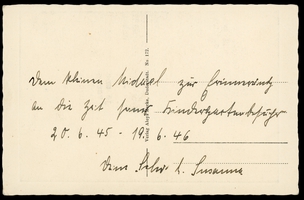 Dem kleinen Michael zur Erinnerung
an die Zeit seines Kindergartenbesuchs
20. 6. 45 - 19. 6. 46
Schw. L. Susanna